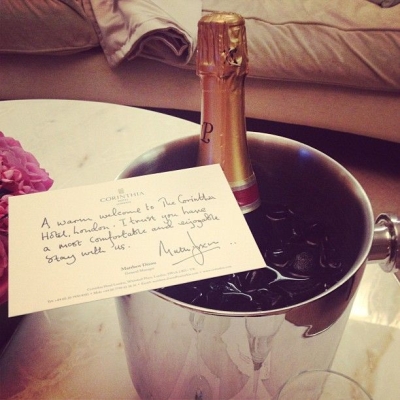 CORINTHIA
A warm welcome to The Corinthia
Hotel, London. I trust you have
a most comfortable and enjoyable
stay with us.
Matthew Dixon
General Manager
P